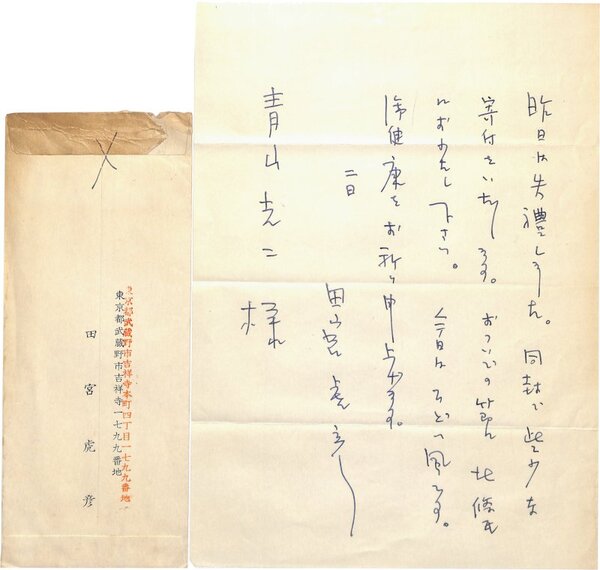 昨日は失禮しました。同封で些少な
寄付をいたします。おついでの節 北條氏
におわたし下さい。今日はひどい風です。
御健康をお祈り申上げます。
二日
田宮虎彦
青山光二様
東京都武蔵野市吉祥寺本町四丁目一七九九番地
東京都武蔵野市吉祥寺一七九九番地
田宮虎彦